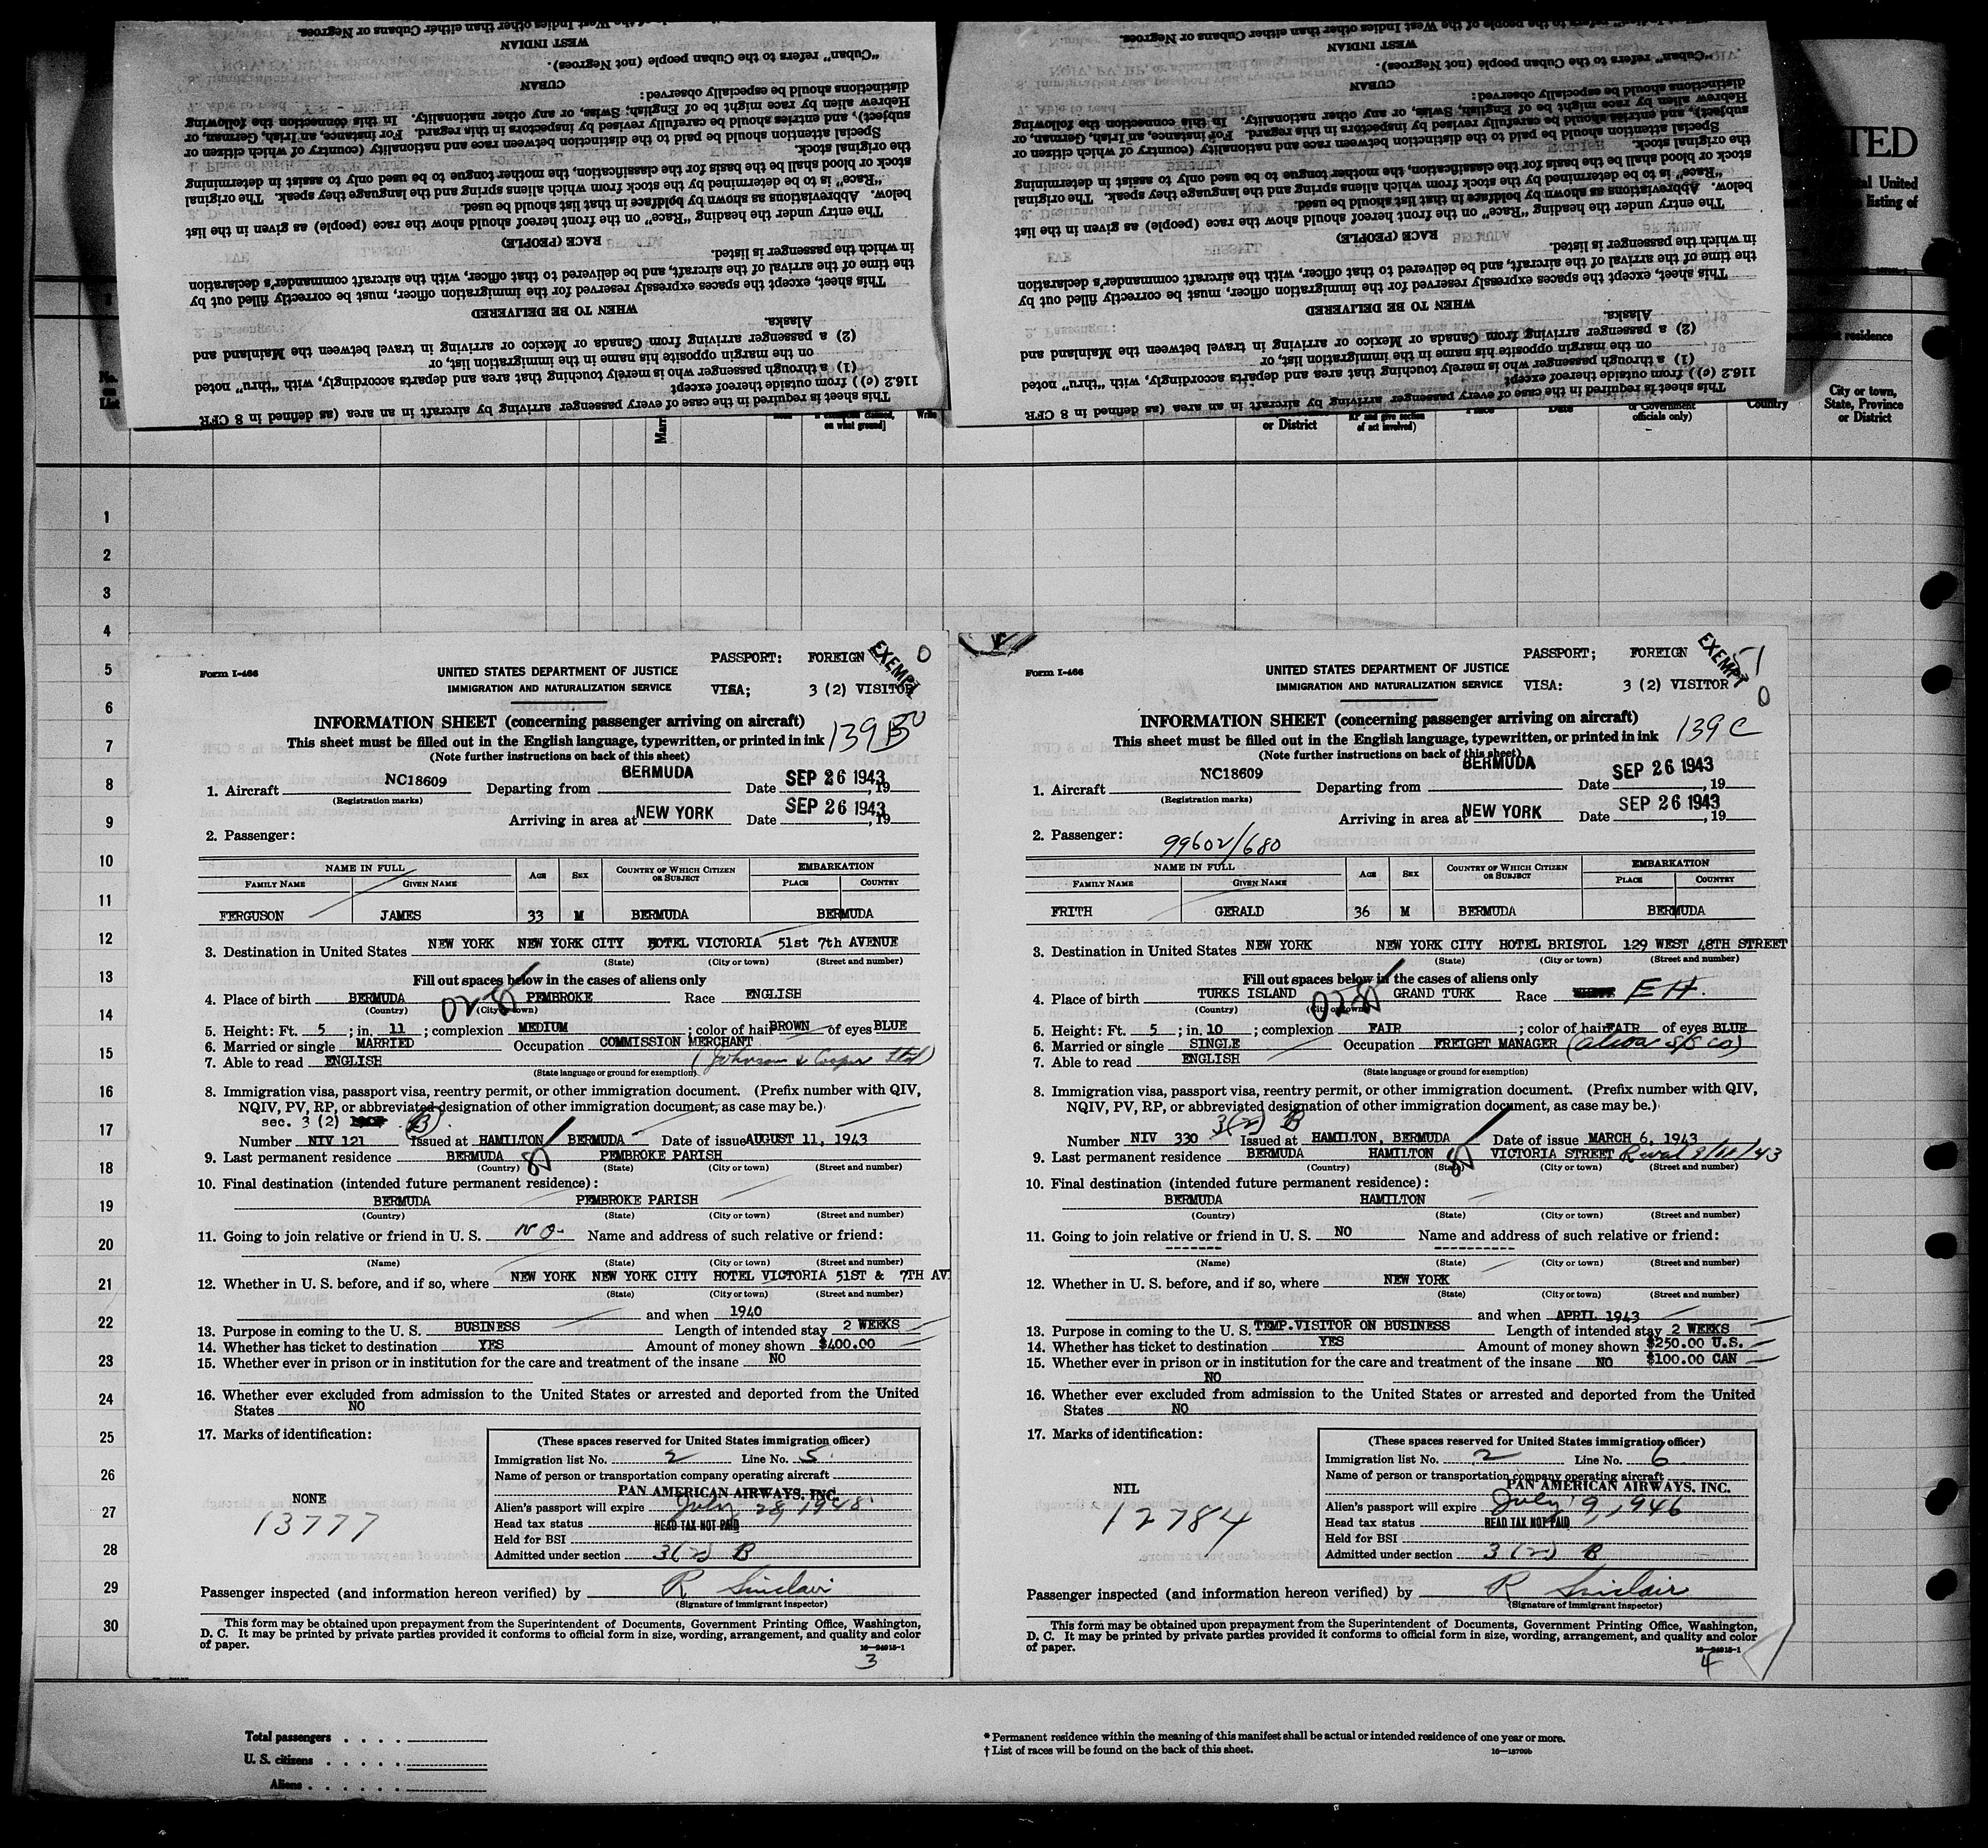 This sheet is required in the case of every passenger arriving by aircraft in an area (as defined in 8 CFR
116.2 (c)) from outside thereof except
(1) a through passenger who is merely touching that area and departs accordingly, with “thru” noted
on the margin opposite his name in the immigration list, or
(2) a passenger arriving from Canada or Mexico or arriving in travel between the Mainland and
Alaska.
WHEN TO BE DELIVERED
This sheet, except the spaces expressly reserved for the immigration officer, must be correctly filled out by
the time of the arrival of the aircraft, and be delivered to that officer, with the aircraft commander's declaration
in which the passenger is listed.
RACE (PEOPLE)
The entry under the heading “Race” on the front hereof should show the race (people) as given in the list
below. Abbreviations as shown by boldface in that list should be used.
“Race” is to be determined by the stock from which aliens spring and the language they speak. The original
stock or blood shall be the basis for the classification, the mother tongue to be used only to assist in determining
the original stock.
Special attention should be paid to the distinction between race and nationality (country of which citizen or
subject), and entries should be carefully revised by inspectors in this regard. For instance, an Irish, German, or
Hebrew alien by race might be of English, Swiss, or any other nationality. In this connection the following
distinctions should be especially observed:
CUBAN
“Cuban” refers to the Cuban people (not Negroes).
WEST INDIAN
refers to the people of the West Indies other than either Cubans or Negroes.
This sheet is required in the case of every passenger arriving by aircraft in an area (as defined in 8 CFR
116.2 (c)) from outside thereof except
(1) a through passenger who is merely touching that area and departs accordingly, with “thru” noted
on the margin opposite his name in the immigration list, or
(2) a passenger arriving from Canada or Mexico or arriving in travel between the Mainland and
Alaska.
WHEN TO BE DELIVERED
This sheet, except the spaces expressly reserved for the immigration officer, must be correctly filled out by
the time of the arrival of the aircraft, and be delivered to that officer, with the aircraft commander's declaration
in which the passenger is listed.
RACE (PEOPLE)
The entry under the heading “Race” on the front hereof should show the race (people) as given in the list
below. Abbreviations as shown by boldface in that list should be used.
“Race” is to be determined by the stock from which aliens spring and the language they speak. The original
stock or blood shall be the basis for the classification, the mother tongue to be used only to assist in determining
the original stock.
Special attention should be paid to the distinction between race and nationality (country of which citizen or
subject), and entries should be carefully revised by inspectors in this regard. For instance, an Irish, German, or
Hebrew alien by race might be of English, Swiss, or any other nationality. In this connection the following
distinctions should be especially observed:
CUBAN
“Cuban” refers to the Cuban people (not Negroes).
WEST INDIAN
refers to the people of the West Indies other than either Cubans or Negroes.
TED
United
listing of
residence
No. on List
on what ground]
or District
RP and give section of act involved)
Date
or Government officials only)
Country
City or town, State, Province or District
1
2
3
4
5
6
7
8
9
10
11
12
13
14
15
16
17
18
19
20
21
22
23
24
25
26
27
28
29
30
Form I-466
UNITED STATES DEPARTMENT OF JUSTICE
IMMIGRATION AND NATURALIZATION SERVICE
PASSPORT: FOREIGN
VISA; 3 (2) VISITOR
EXEMPT
0
INFORMATION SHEET (concerning passenger arriving on aircraft)
139B
This sheet must be filled out in the English language, typewritten, or printed in ink
(Note further instructions on back of this sheet)
1. Aircraft NC18609 Departing from BERMUDA Date SEP 26 1943, 19
(Registration marks)
Arriving in area at NEW YORK Date SEP 26 1943, 19
2. Passenger:
NAME IN FULL AGE SEX COUNTRY OF WHICH CITIZEN OR SUBJECT EMBARKATION
FAMILY NAME GIVEN NAME PLACE COUNTRY
FERGUSON JAMES 33 M BERMUDA BERMUDA
3. Destination in United States NEW YORK NEW YORK CITY HOTEL VICTORIA 51st 7th AVENUE
(State) (City or town) (Street and number)
Fill out spaces below in the cases of aliens only
4. Place of birth BERMUDA PEMBROKE Race ENGLISH
(Country) (City or town)
5. Height: Ft. 5; in. 11; complexion MEDIUM; color of hair BROWN of eyes BLUE
6. Married or single MARRIED Occupation COMMISSION MERCHANT
7. Able to read ENGLISH (Johnson & Cooper Ltd)
(State language or ground for exemption)
8. Immigration visa, passport visa, reentry permit, or other immigration document. (Prefix number with QIV,
NQIV, PV, RP, or abbreviated designation of other immigration document, as case may be.)
sec. 3 (2) (B)
Number NIV 121 Issued at HAMILTON BERMUDA Date of issue AUGUST 11, 1943
9. Last permanent residence BERMUDA PEMBROKE PARISH
(Country) (State) (City or town) (Street and number)
10. Final destination (intended future permanent residence):
BERMUDA PEMBROKE PARISH
(Country) (State) (City or town) (Street and number)
11. Going to join relative or friend in U. S. NO Name and address of such relative or friend:
(Name) (State) (City or town) (Street and number)
12. Whether in U. S. before, and if so, where NEW YORK NEW YORK CITY HOTEL VICTORIA 51ST & 7TH AV
(State) (City or town) (Street and number)
and when 1940
13. Purpose in coming to the U. S. BUSINESS Length of intended stay 2 WEEKS
14. Whether has ticket to destination YES Amount of money shown $400.00
15. Whether ever in prison or in institution for the care and treatment of the insane NO
16. Whether ever excluded from admission to the United States or arrested and deported from the United
States NO
17. Marks of identification:
NONE
13777
(These spaces reserved for United States immigration officer)
Immigration list No. 2 Line No. 5
Name of person or transportation company operating aircraft
PAN AMERICAN AIRWAYS, INC.
Alien's passport will expire July 28, 1948
Head tax status HEAD TAX NOT PAID
Held for BSI
Admitted under section 3(2) B
Passenger inspected (and information hereon verified) by R Sinclair
(Signature of immigrant inspector)
This form may be obtained upon prepayment from the Superintendent of Documents, Government Printing Office, Washington,
D. C. It may be printed by private parties provided it conforms to official form in size, wording, arrangement, and quality and color
of paper.
16—24915-1
3
Form I-466
UNITED STATES DEPARTMENT OF JUSTICE
IMMIGRATION AND NATURALIZATION SERVICE
PASSPORT; FOREIGN
VISA: 3 (2) VISITOR
EXEMPT
0
INFORMATION SHEET (concerning passenger arriving on aircraft)
139C
This sheet must be filled out in the English language, typewritten, or printed in ink
(Note further instructions on back of this sheet)
1. Aircraft NC18609 Departing from BERMUDA Date SEP 26 1943, 19
(Registration marks)
Arriving in area at NEW YORK Date SEP 26 1943, 19
2. Passenger: 99602/680
NAME IN FULL AGE SEX COUNTRY OF WHICH CITIZEN OR SUBJECT EMBARKATION
FAMILY NAME GIVEN NAME PLACE COUNTRY
FRITH GERALD 36 M BERMUDA BERMUDA
3. Destination in United States NEW YORK NEW YORK CITY HOTEL BRISTOL 129 WEST 48TH STREET
(State) (City or town) (Street and number)
Fill out spaces below in the cases of aliens only
4. Place of birth TURKS ISLAND GRAND TURK Race EH.
(Country) (City or town)
5. Height: Ft. 5; in. 10; complexion FAIR; color of hair FAIR of eyes BLUE
6. Married or single SINGLE Occupation FREIGHT MANAGER (Alcoa S/S Co)
7. Able to read ENGLISH
(State language or ground for exemption)
8. Immigration visa, passport visa, reentry permit, or other immigration document. (Prefix number with QIV,
NQIV, PV, RP, or abbreviated designation of other immigration document, as case may be.)
3(2) B
Number NIV 330 Issued at HAMILTON, BERMUDA Date of issue MARCH 6, 1943
9. Last permanent residence BERMUDA HAMILTON VICTORIA STREET
(Country) (State) (City or town) (Street and number)
10. Final destination (intended future permanent residence):
BERMUDA HAMILTON
(Country) (State) (City or town) (Street and number)
11. Going to join relative or friend in U. S. NO Name and address of such relative or friend:
(Name) (State) (City or town) (Street and number)
12. Whether in U. S. before, and if so, where NEW YORK
(State) (City or town) (Street and number)
and when APRIL 1943
13. Purpose in coming to the U. S. TEMP.VISITOR ON BUSINESS Length of intended stay 2 WEEKS
14. Whether has ticket to destination YES Amount of money shown $250.00 U.S.
15. Whether ever in prison or in institution for the care and treatment of the insane NO $100.00 CAN
NO
16. Whether ever excluded from admission to the United States or arrested and deported from the United
States NO
17. Marks of identification:
NIL
12784
(These spaces reserved for United States immigration officer)
Immigration list No. 2 Line No. 6
Name of person or transportation company operating aircraft
PAN AMERICAN AIRWAYS, INC.
Alien's passport will expire July 9, 1946
Head tax status HEAD TAX NOT PAID
Held for BSI
Admitted under section 3(2) B
Passenger inspected (and information hereon verified) by R Sinclair
(Signature of immigrant inspector)
This form may be obtained upon prepayment from the Superintendent of Documents, Government Printing Office, Washington,
D. C. It may be printed by private parties provided it conforms to official form in size, wording, arrangement, and quality and color
of paper.
16—24915-1
4
Total passengers
U. S. citizens
Aliens
* Permanent residence within the meaning of this manifest shall be actual or intended residence of one year or more.
† List of races will be found on the back of this sheet.
16—18709b